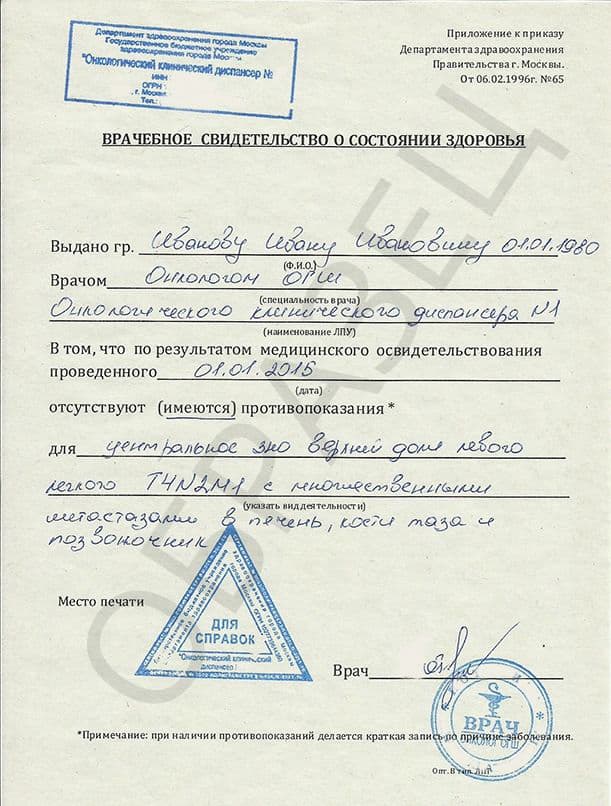 Департамент здравоохранения города Москвы
Государственное бюджетное учреждение
здравоохранения города Москвы
"Онкологический клинический диспансер №
ИНН
ОГРН
г. Москва
Тел.:
Приложение к приказу
Департамента здравоохранения
Правительства г. Москвы.
От 06.02.1996г. №65
ВРАЧЕБНОЕ СВИДЕТЕЛЬСТВО О СОСТОЯНИИ ЗДОРОВЬЯ
Выдано гр. Иванову Ивану Ивановичу 01.01.1980
(Ф.И.О.)
Врачом Онкологом ОГШ
(специальность врача)
Онкологического клинического диспансера №1
(наименование ЛПУ)
В том, что по результатом медицинского освидетельствования
проведенного 01.01.2015
(дата)
отсутствуют (имеются) противопоказания *
для центральное зно верхней доли левого
легкого T4N2M1 с множественными
(указать вид деятельности)
метастазами в печень, кости таза и
позвоночник
ОБРАЗЕЦ
Место печати
ДЛЯ
СПРАВОК
"Онкологический клинический
диспансер
Врач
ВРАЧ
ОНКОЛОГ ОГШ
*Примечание: при наличии противопоказаний делается краткая запись по причине заболевания.